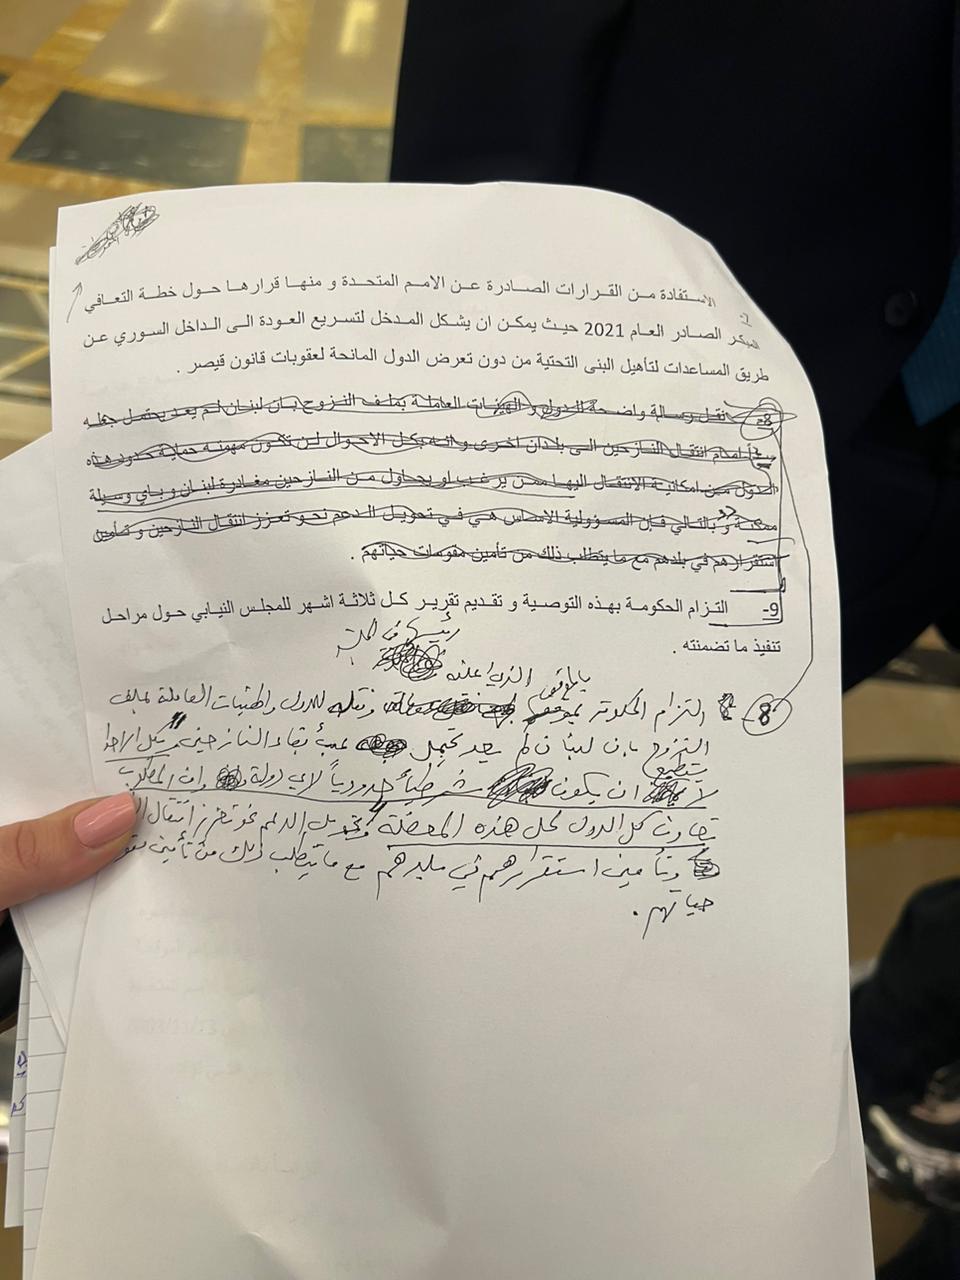 7-
الاستفادة من القرارات الصادرة عن الامم المتحدة و منها قرارها حول خطة التعافي
المبكر الصادر العام 2021 حيث يمكن ان يشكل المدخل لتسريع العودة الى الداخل السوري عن
طريق المساعدات لتأهيل البنى التحتية من دون تعرض الدول المانحة لعقوبات قانون قيصر .
8- نقل رسالة واضحة للدول و الهيئات العاملة بملف النزوح بان لبنان لم يعد يحتمل جعله
سداً امام انتقال النازحين الى بلدان اخرى و انه بكل الاحوال لن تكون مهمته حماية حدود هذه
الدول من امكانية الانتقال اليها ممن يرغب او يحاول من النازحين مغادرة لبنان و باي وسيلة
ممكنة و بالتالي فإن المسؤولية الاساس هي في تحويل الدعم نحو تعزيز انتقال النازحين و تأمين
استقرارهم في بلدهم مع ما يتطلب ذلك من تأمين مقومات حياتهم .
9- التزام الحكومة بهذه التوصية و تقديم تقرير كل ثلاثة اشهر للمجلس النيابي حول مراحل
تنفيذ ما تضمنته .
بالموقف الذي اعلنه رئيسها في الجلسة
8 التزام الحكومة ونقله للدول والهيئات العاملة بملف
النزوح بان لبنان لم يعد يحتمل عبء بقاء النازحين وبكل الاحوا
لا يستطيع ان يكون شرطياً حدودياً لاي دولة وان المطلوب
تعاون كل الدول لحل هذه المعضلة وتحويل الدعم نحو تعزيز انتقال
وتأمين استقرارهم في بلدهم مع ما يتطلب ذلك من تأمين
حياتهم .